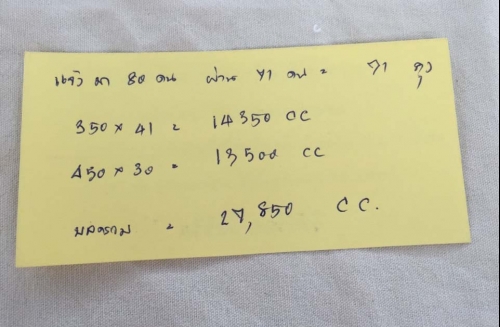 แจ้ว มา 80 คน ผ่าน 71 คน = 71 ถุง
350 × 41 = 14350 CC
450 × 30 = 13500 CC
ผลรวม = 27,850 CC.